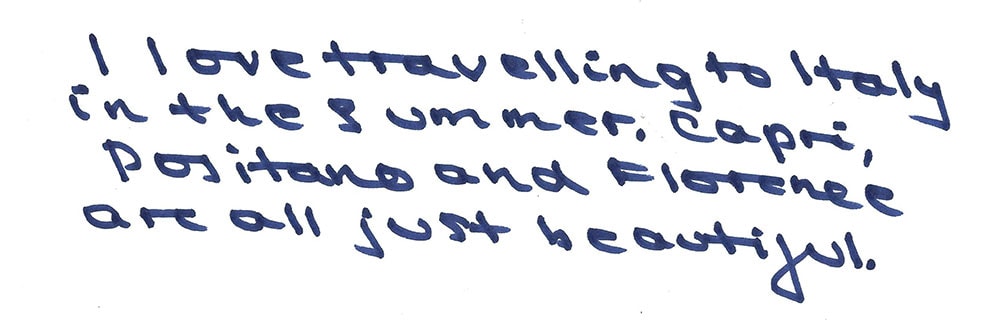 I love travelling to Italy
in the summer. Capri,
Positano and Florence
are all just beautiful.